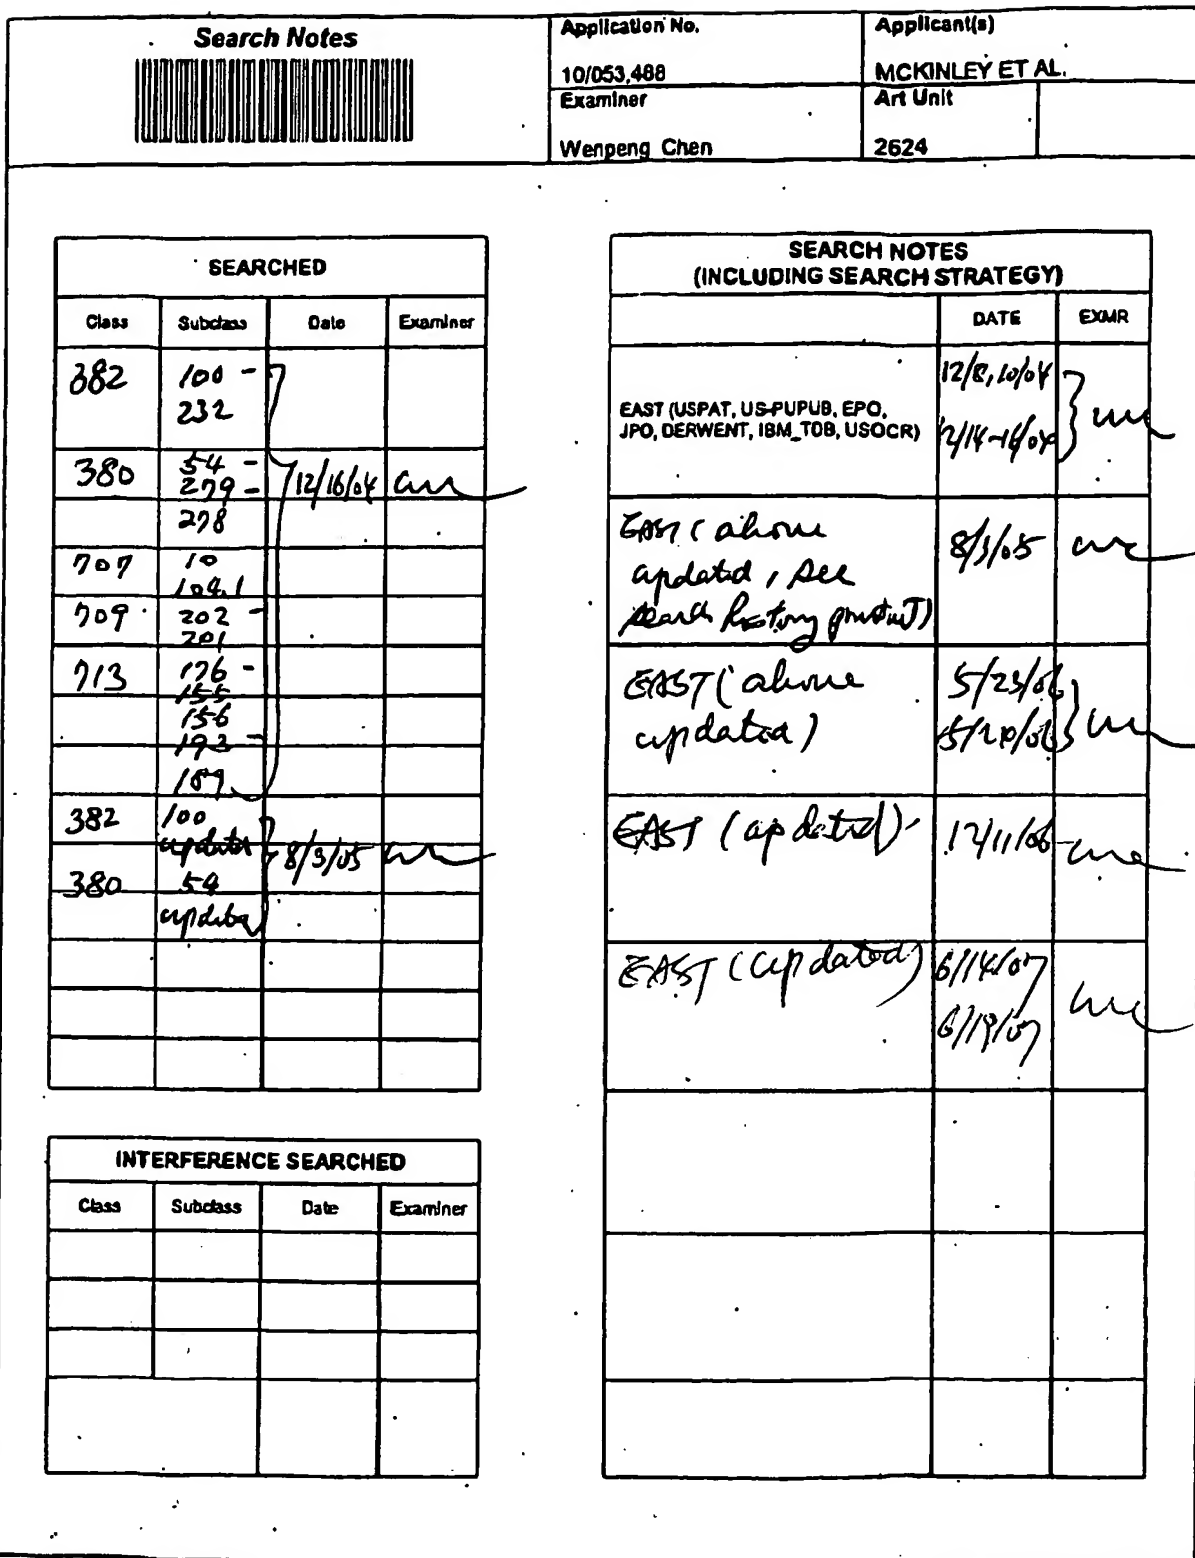 Search Notes
Application No.
Applicant(s)
10/053,488
MCKINLEY ET AL.
Examiner
Art Unit
Wenpeng Chen
2624
SEARCHED
Class Subclass Date Examiner
382 100 -
232
380 54 -
279 -
12/16/04
278
707 10
104.1
709 202 -
201
713 176 -
155
156
193 -
189
382 100
updated
8/3/05
380 54
updated
INTERFERENCE SEARCHED
Class Subclass Date Examiner
SEARCH NOTES
(INCLUDING SEARCH STRATEGY)
DATE EXMR
EAST (USPAT, US-PUPUB, EPO,
JPO, DERWENT, IBM_TDB, USOCR)
12/8,10/04
12/14-16/04
EAST (above
updated, see
search history printout)
8/3/05
EAST (above
updated)
5/23/06
EAST (updated)
12/11/06
EAST (updated)
6/14/07
6/19/07